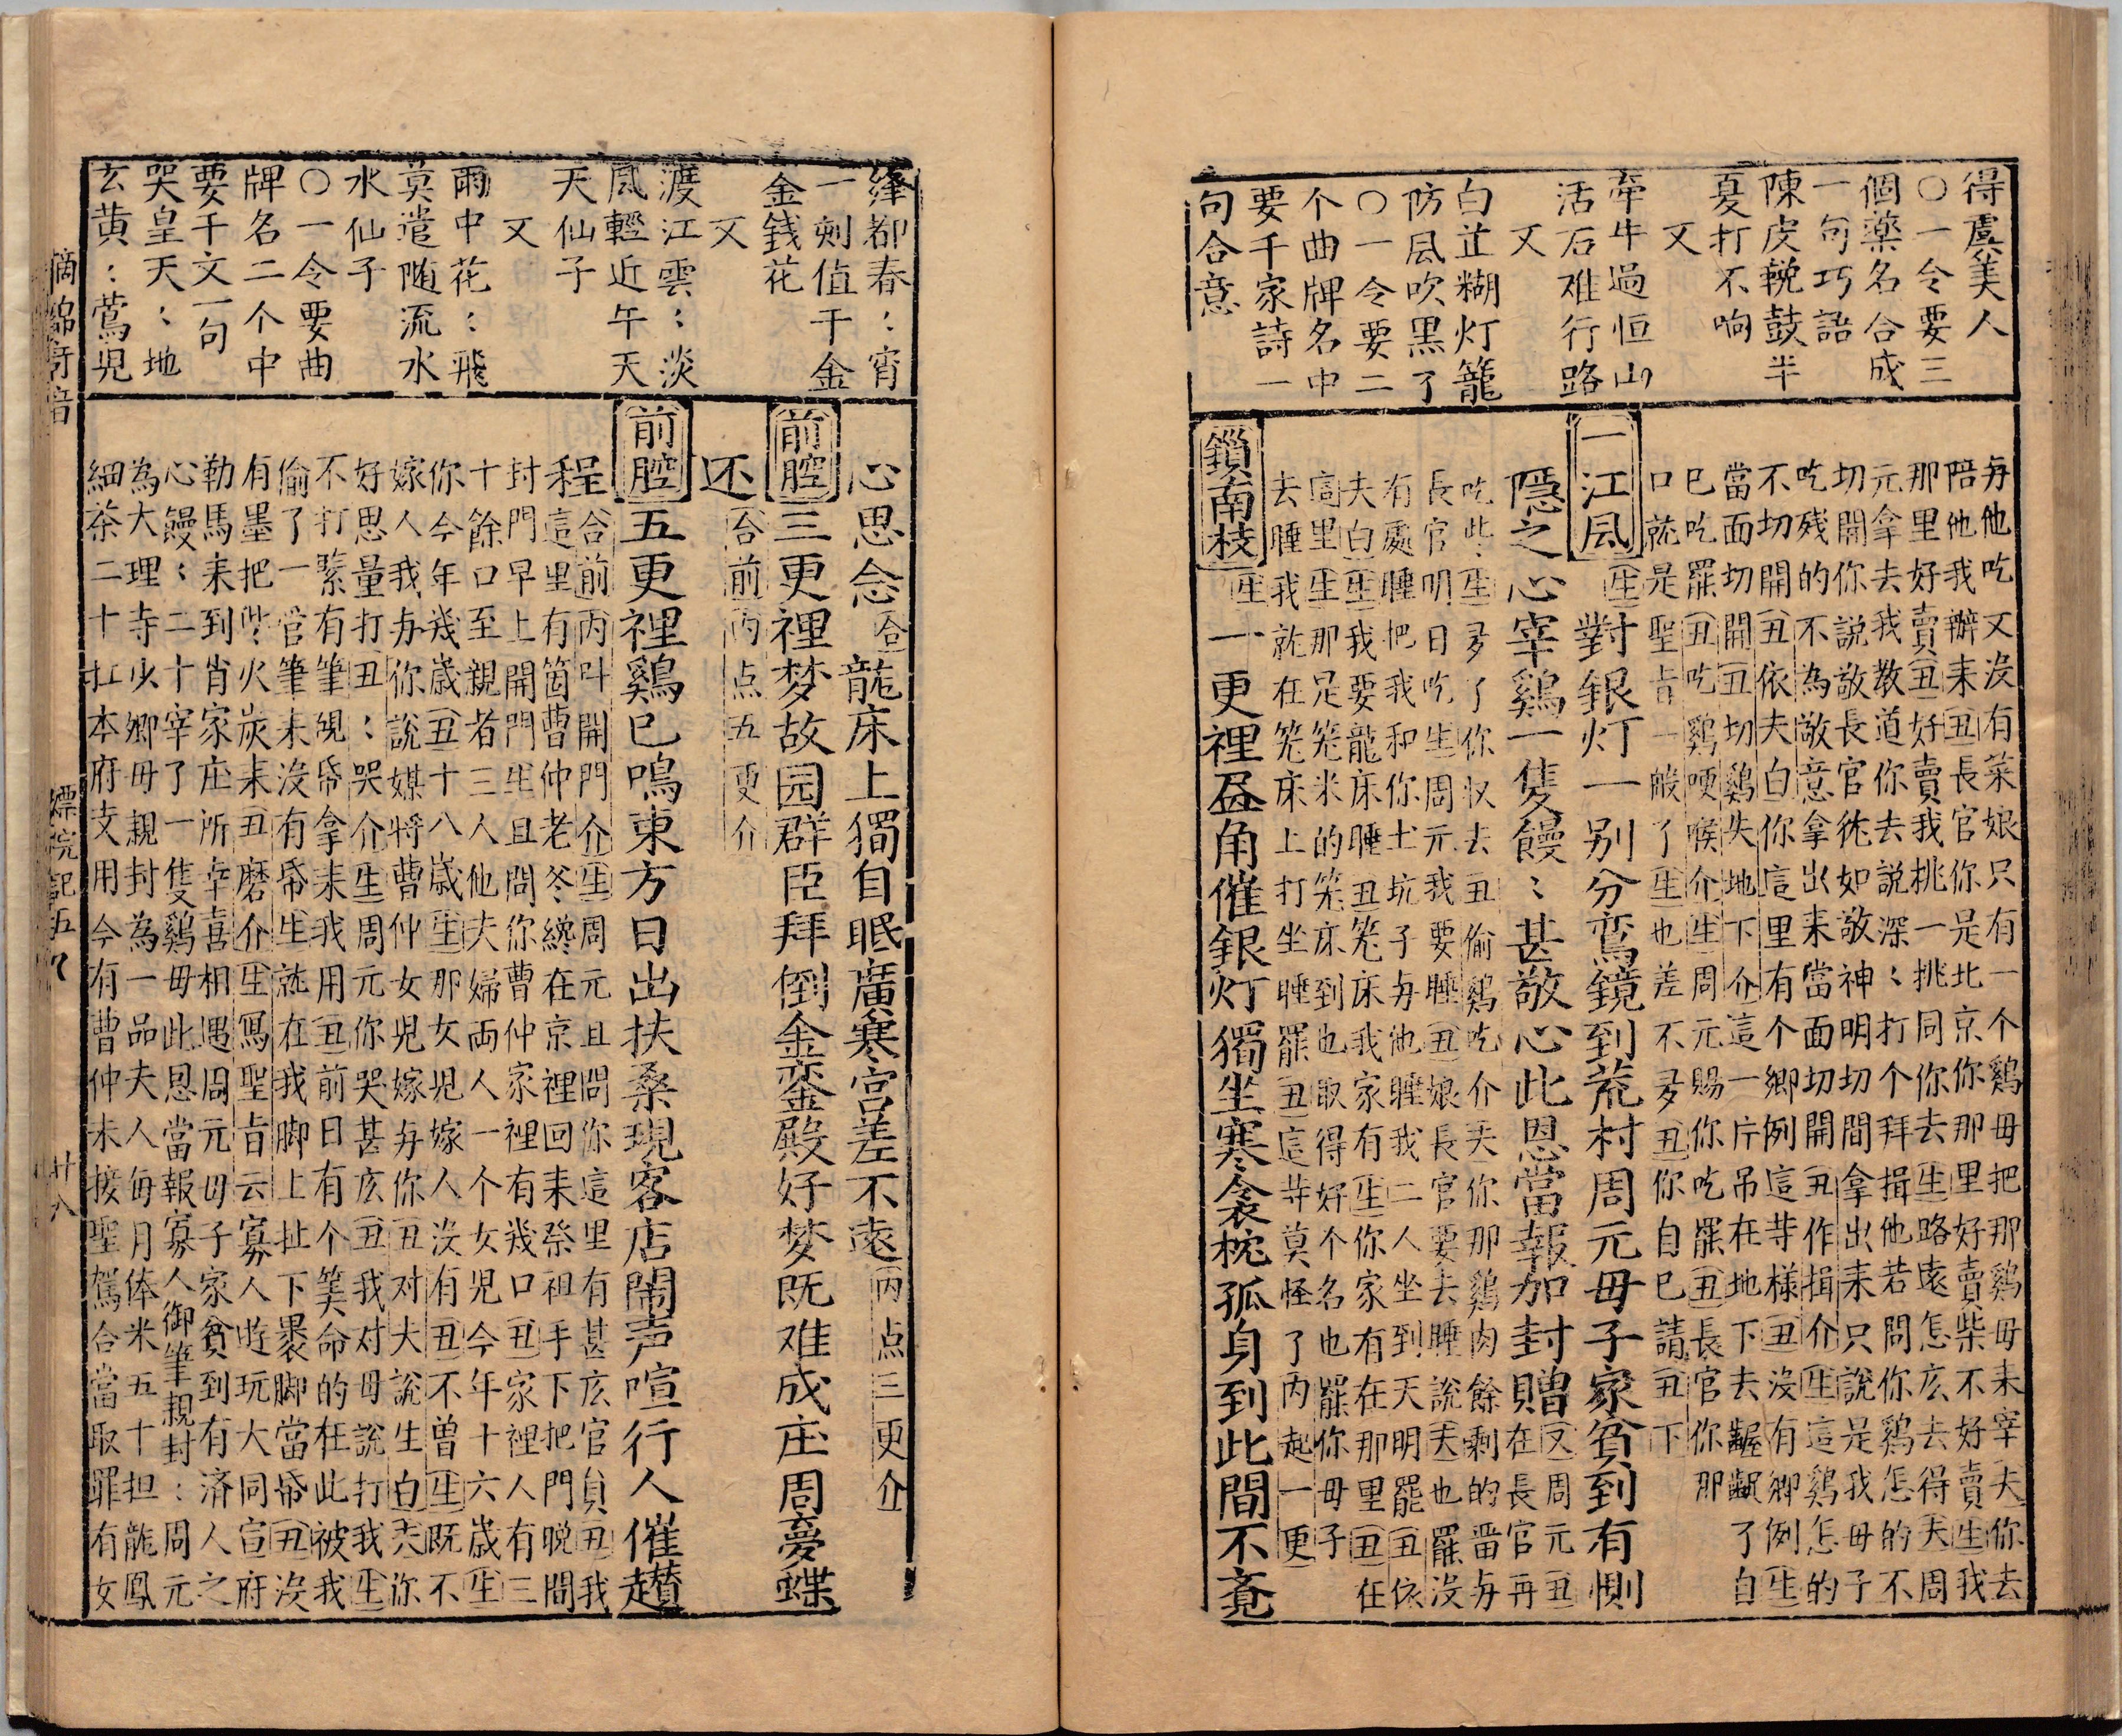 得虞美人
○一令要三
個藥名合成
一句巧語
陳皮輓鼓半
夏打不响
又
牽牛過恒山
活石难行路
又
白芷糊灯籠
防風吹黑了
○一令要二
个曲牌名中
要千家詩一
句合意
毋他吃又沒有菜娘只有一个鷄毋把那鷄毋来宰夫你去
陪他我辦来丑長官你是北京你那里好賣柴不好賣生我
那里好賣丑好賣我挑一挑同你去生路遠怎庅去得夫周
元拿去我教道你去説深:打个拜揖他若問你鷄怎的不
切開你説敬長官徃如敬神明切間拿出来只説是我毋子
吃残的不為敬意拿出来當面切開丑作揖介生這鷄怎的
不切開丑依夫白你這里有个鄉例這等様丑沒有鄉例生
當面切開丑切鷄失地下介這一片吊在地下去齷齪了自
已吃罷丑吃鷄哽喉介生周元賜你吃罷丑長官你那
口就是聖㫖一般了生也差不多丑你自已請丑下
一江風生對銀灯一别分鸞鏡到荒村周元毋子家貧到有惻
隱之心宰鷄一隻饅:甚敬心此恩當報加封贈又周元丑在長官再
吃些生多了你收去丑偷鷄吃介夫你那鷄肉餘剩的畱毋
長官明日吃生周元我要睡丑娘長官要去睡說夫也罷沒
有處睡把我和你土坑子毋他睡我二人坐到天明罷丑依
夫白生我要龍床睡丑笼床我家有生你家有在那里丑在
這里生那是笼米的笼床到也取得好个名也罷你毋子
去睡我就在笼床上打坐睡罷丑這等莫怪了内起一更
鎖南枝生一更裡盔角催銀灯獨坐寒衾枕孤身到此間不竟
絳都春:宵
一刻值千金
金錢花
又
渡江雲:淡
風輕近午天
天仙子
又
雨中花:飛
莫遣随流水
水仙子
○一令要曲
牌名二个中
要千文一句
哭皇天:地
玄黄:鶯児
心思念合龍床上獨自眠廣寒宮差不遠内点三更介
前腔三更裡梦故园群臣拜倒金鑾殿好梦既难成庄周夢蝶
还合前内点五更介
前腔五更裡鷄已鳴東方日出扶桑現客店閙声喧行人催趲
程合前内呌開門介生周元且問你這里有甚庅官員丑我
這里有箇曹仲老爷纔在京裡回来祭祖手下把門晩間
封門早上開門生且問你曹仲家裡有幾口丑家裡人有三
十餘口至親者三人他夫婦両人一个女児今年十六歳生
你今年幾歳丑十八歳生那女児嫁人沒有丑不曾生既不
嫁人我毋你說媒將曹仲女児嫁毋你丑对大說生白夫你
好思量打丑:哭介生周元你哭甚庅丑我对毋說打我生
不打𦂳有筆硯帋拿来我用丑前日有个筭命的在此被我
偷了一官筆来沒有帋生就在我脚上扯下褁脚當帋丑沒
有墨把些火炭来丑磨介生寫聖㫖云寡人逰玩大同宣府
勒馬来到肖家庄所幸喜相遇周元毋子家貧到有済人之
心饅:二十宰了一隻鷄毋此恩當報寡人御筆親封:周元
為大理寺少卿毋親封為一品夫人每月俸米五十担龍鳳
細茶二十扛本府支用今有曹仲未接聖駕合當取罪有女
摘錦奇音
嫖院記五九
廿八